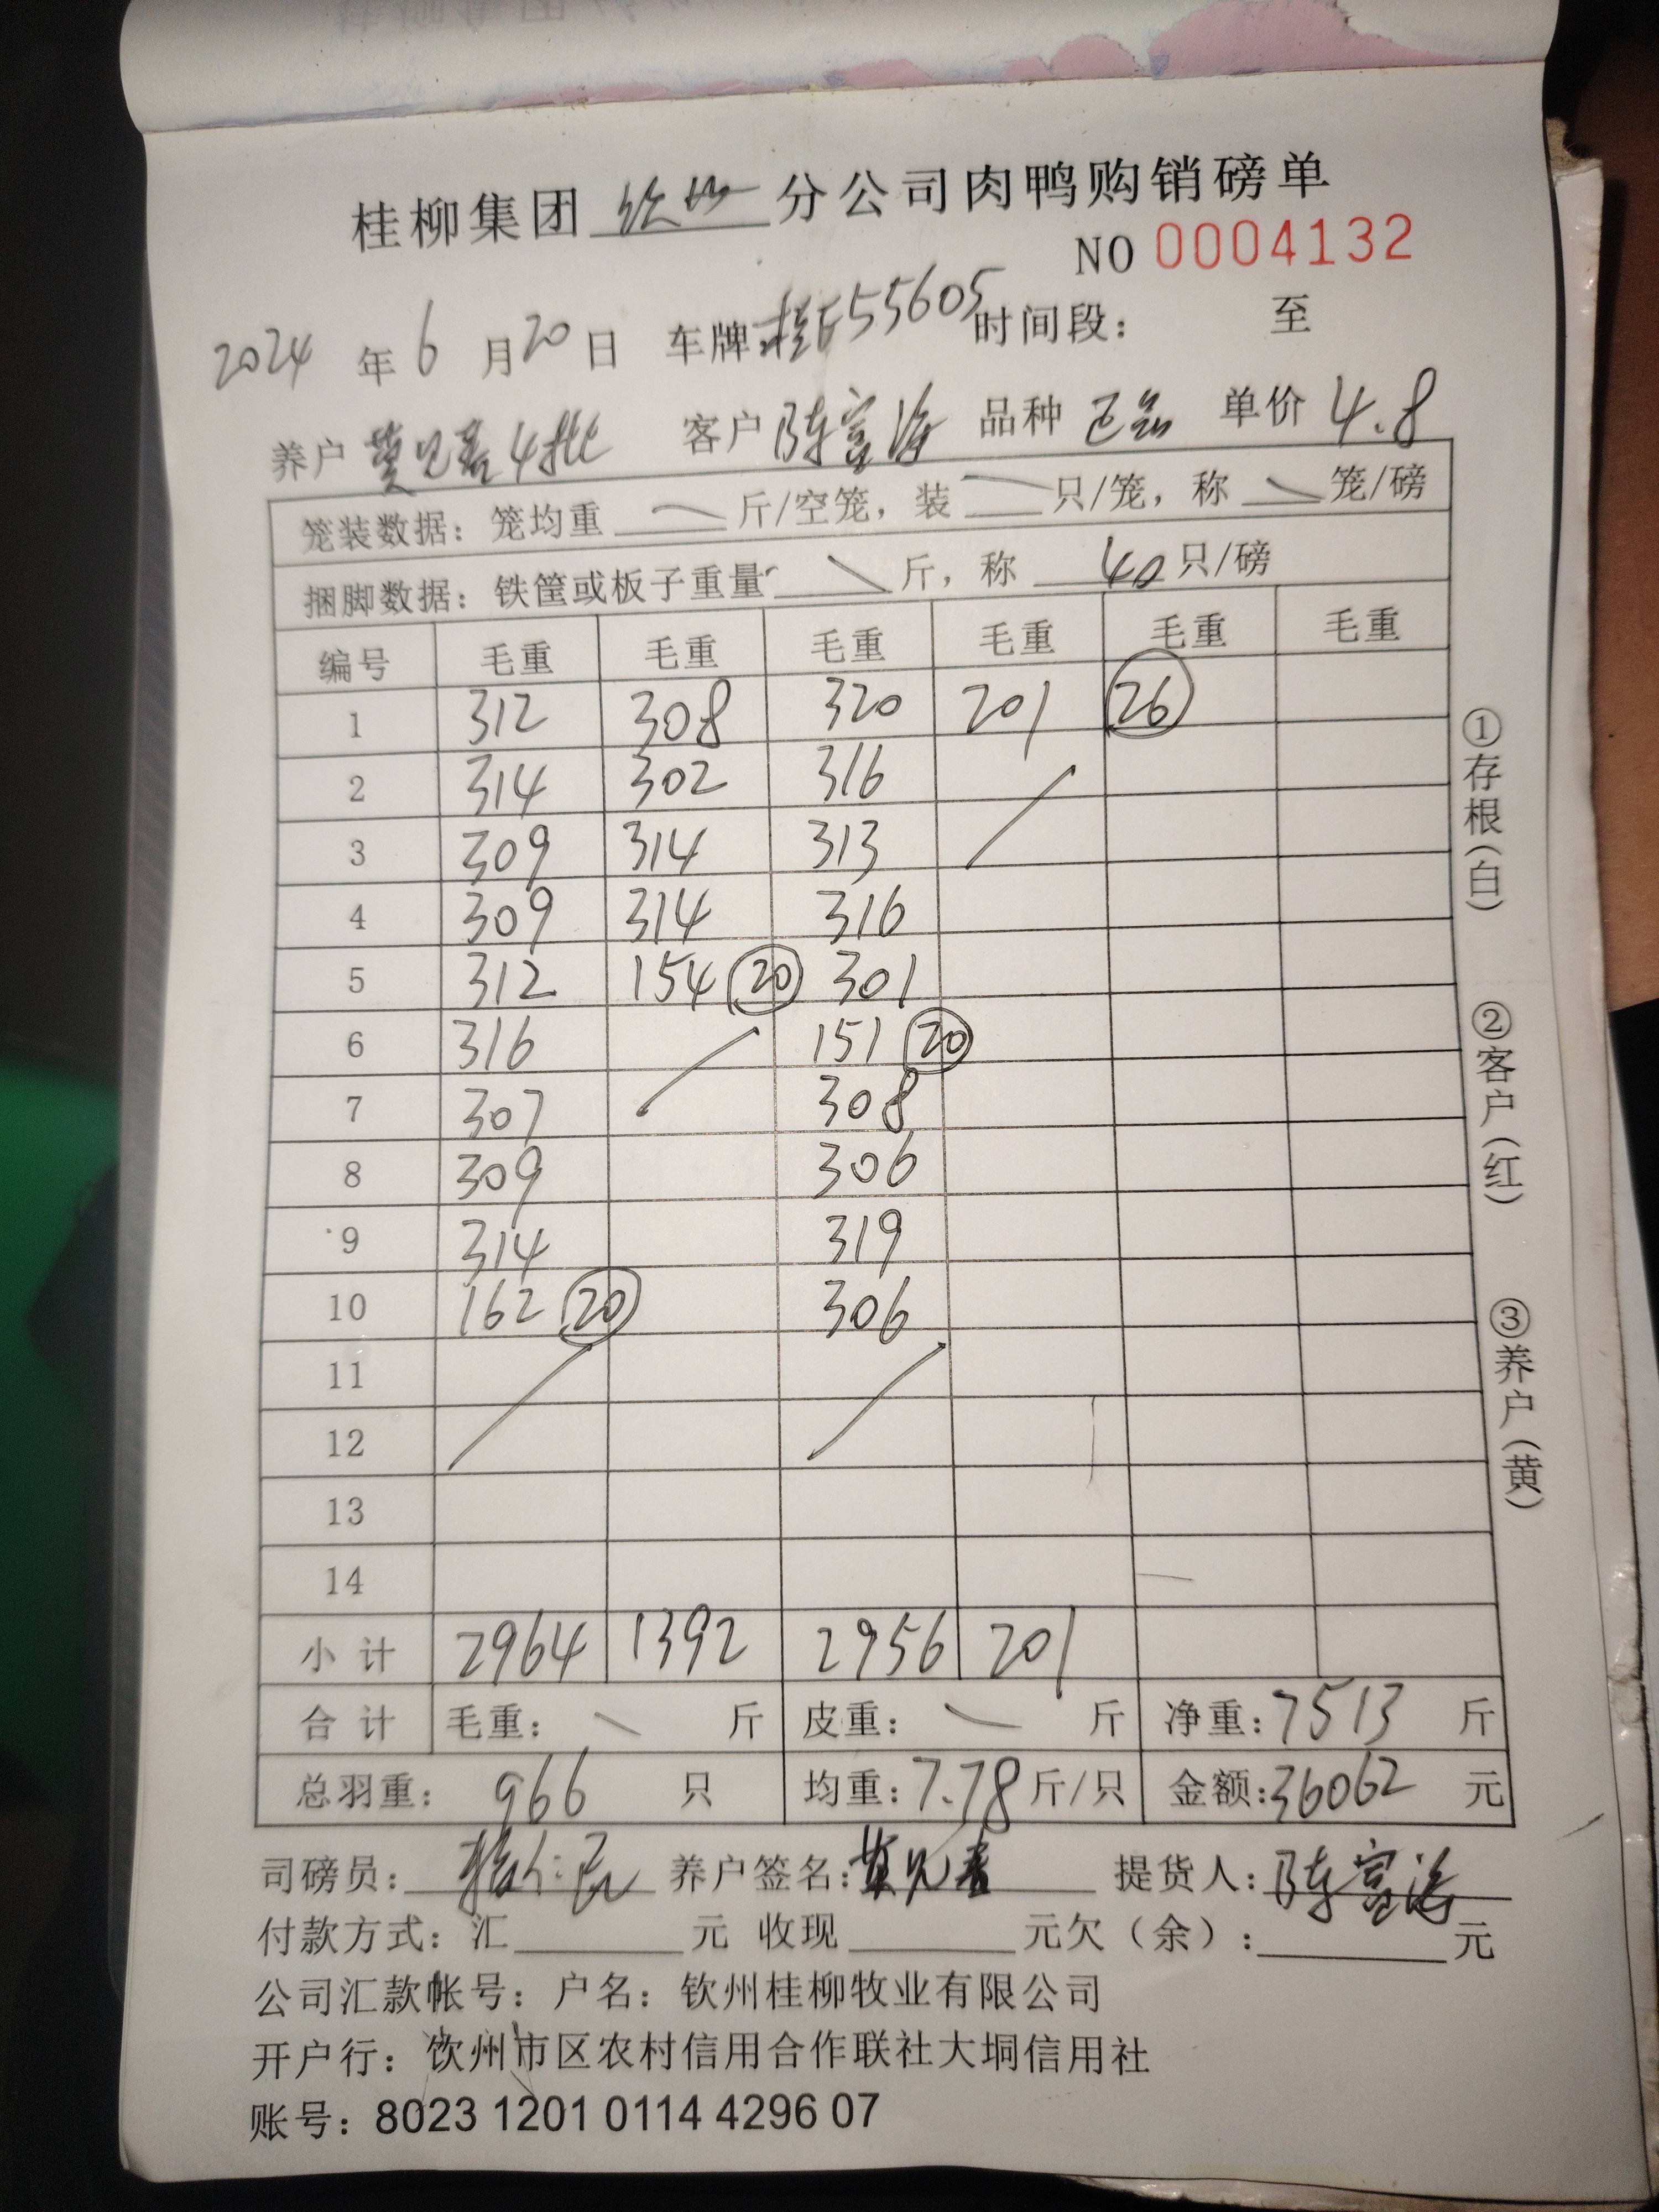 桂柳集团 钦州 分公司肉鸭购销磅单
NO 0004132
2024 年 6 月 20 日 车牌: 桂F55605 时间段: 至
养户 莫 4批 客户 陈富海 品种 单价 4.8
笼装数据: 笼均重 斤/空笼, 装 只/笼, 称 笼/磅
捆脚数据: 铁筐或板子重量 斤, 称 40 只/磅
编号 毛重 毛重 毛重 毛重 毛重 毛重
1 312 308 320 201 26
2 314 302 316
3 309 314 313
4 309 314 316
5 312 154 20 301
6 316 151 20
7 307 308
8 309 306
9 314 319
10 162 20 306
11
12
13
14
小计 2964 1392 2956 201
合计 毛重: 斤 皮重: 斤 净重: 7513 斤
总羽重: 966 只 均重: 7.78 斤/只 金额: 36062 元
司磅员: 养户签名: 莫 提货人: 陈富海
付款方式: 汇 元 收现 元欠(余): 元
公司汇款帐号: 户名: 钦州桂柳牧业有限公司
开户行: 钦州市区农村信用合作联社大垌信用社
账号: 8023 1201 0114 4296 07
①存根(白)
②客户(红)
③养户(黄)